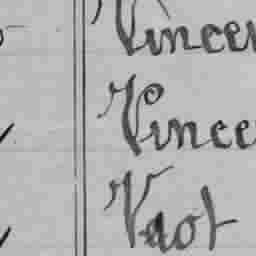 Vincen
Vince
Vaot